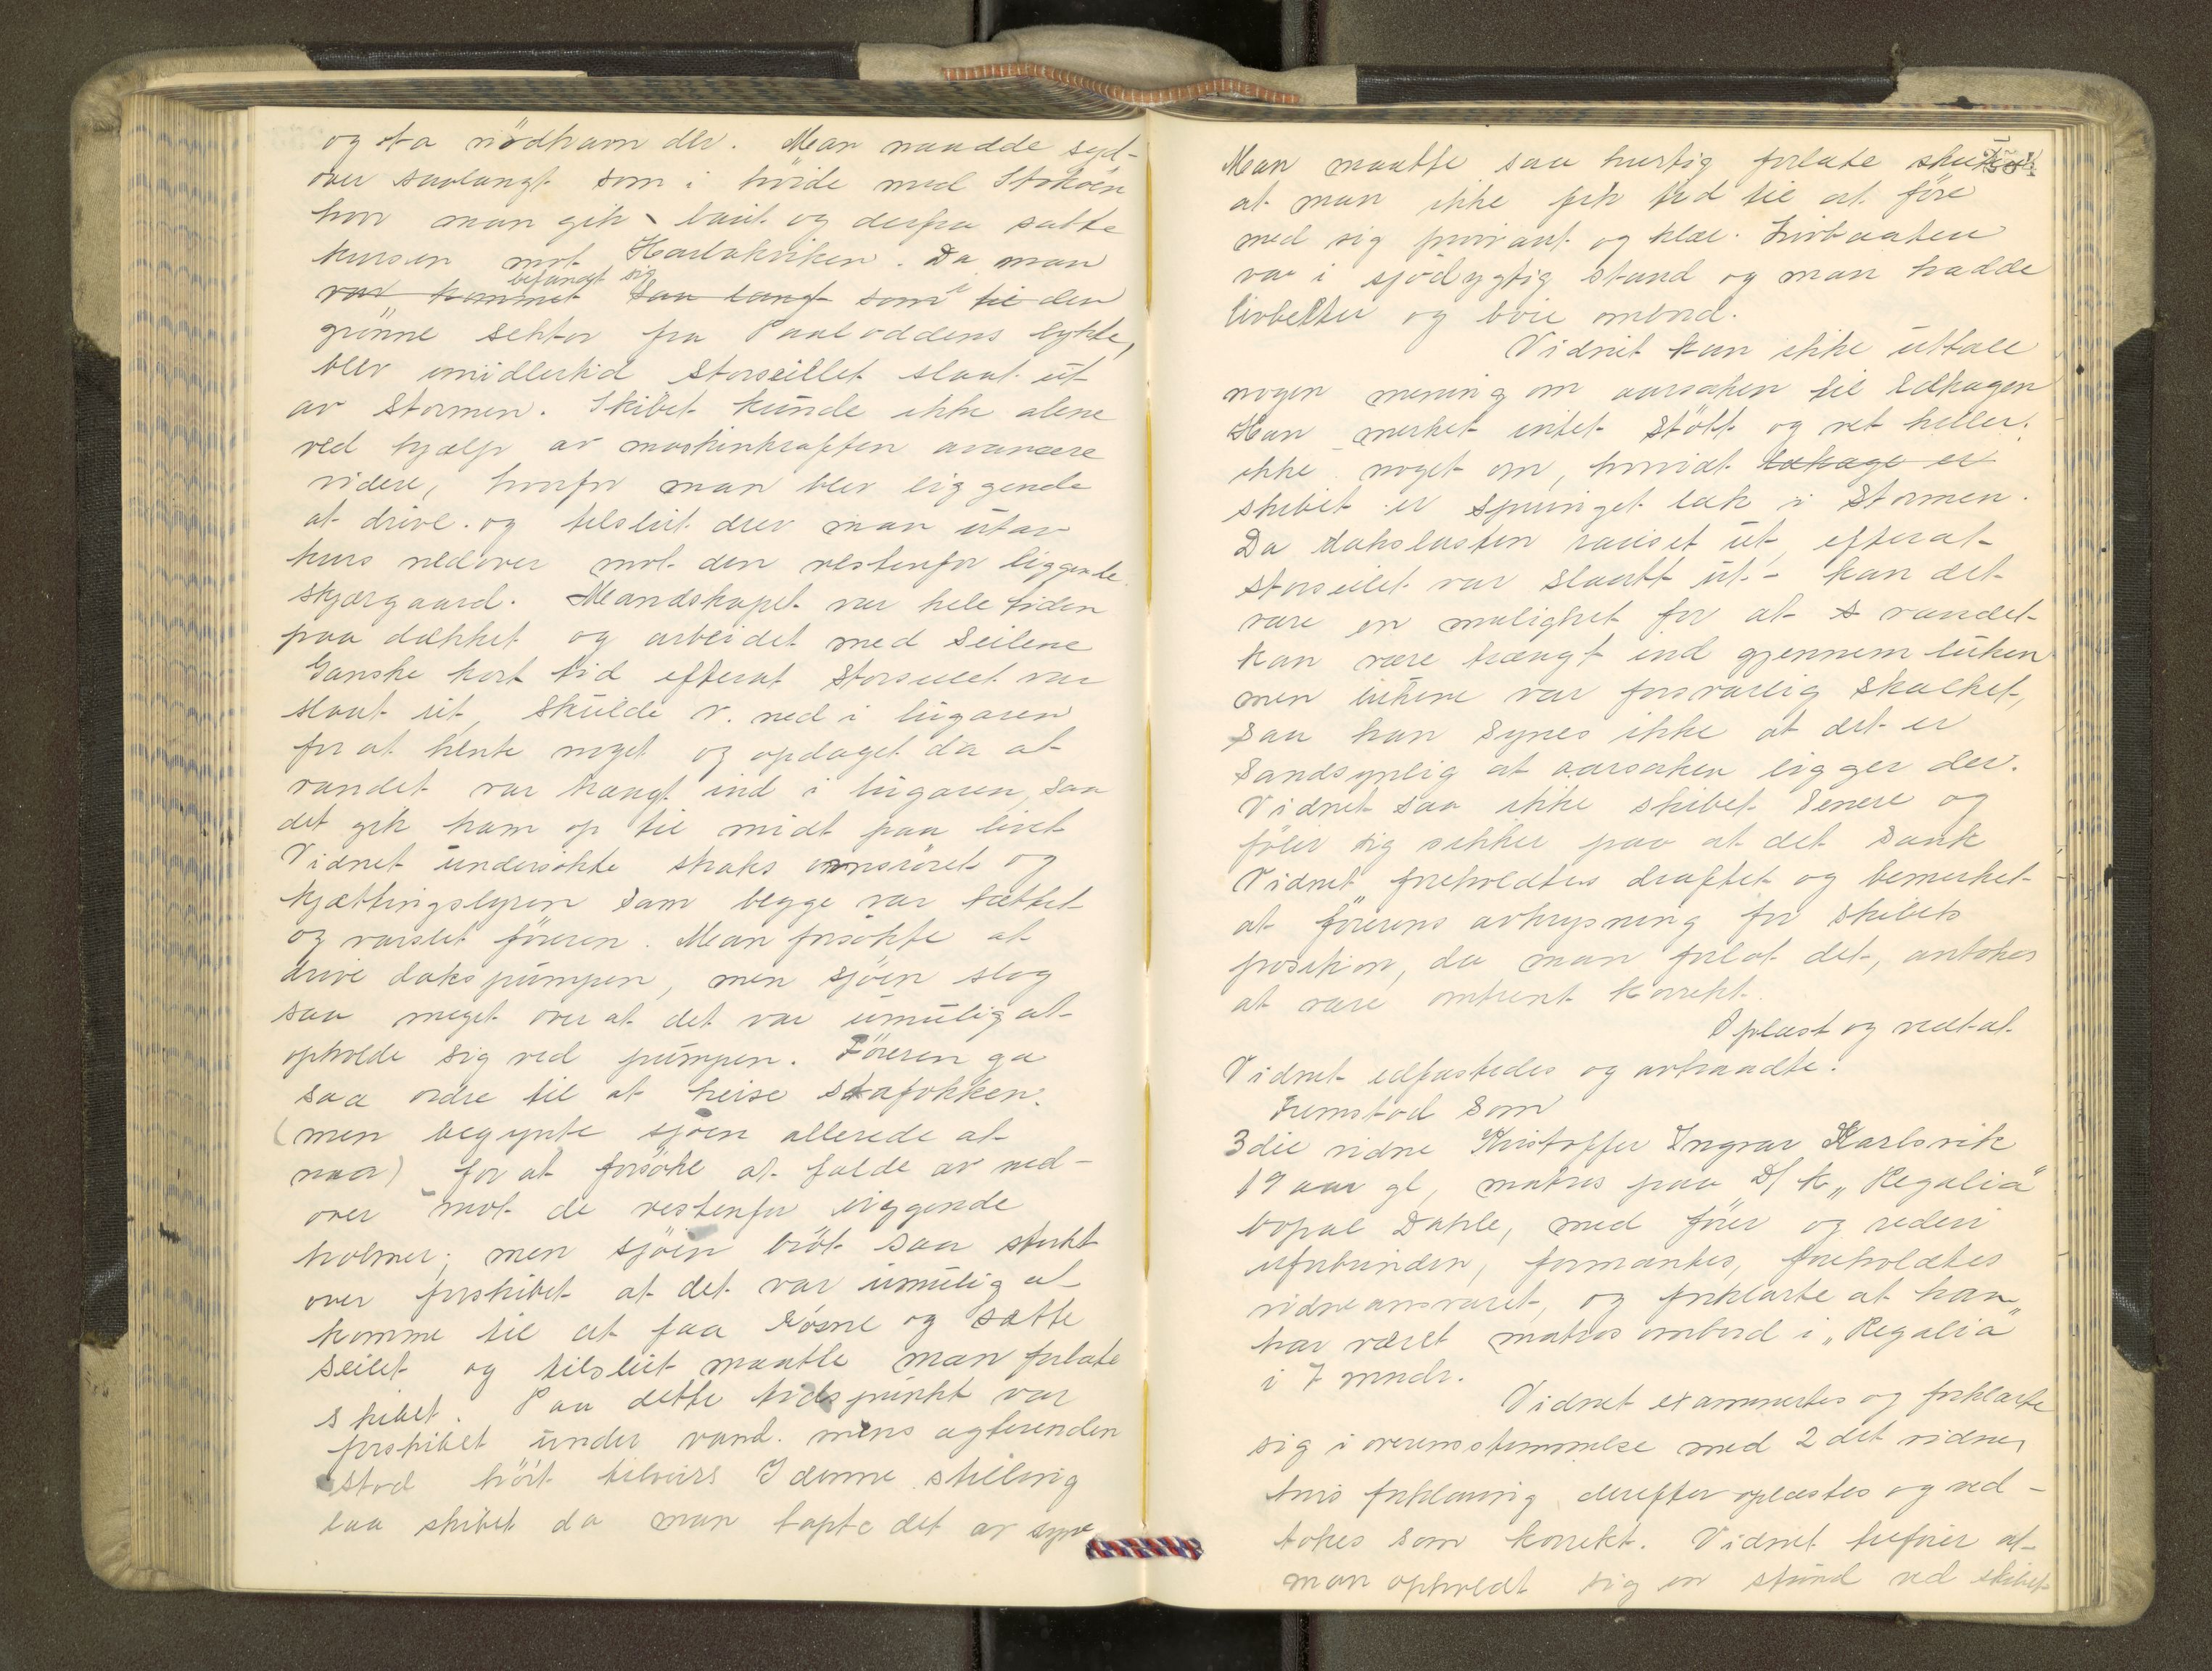 og ta nödhavn der. Man naadde syd-
over saalangt som i höide med Stoköen
hvor man gik baut og derfra satte
kursen mot Harbakviken. Da man
befandt sig
var kommet saa langt som i til den
grönne sektor fra Paaloddens lykte,
blev imidlertid storseillet slaat ut
av stormen. Skibet kunde ikke alene
ved hjælp av maskinkraften avancere
videre, hvorfor man blev liggende
at drive. og tilslut drev man utav
kurs nedover mot den vestenfor liggende
skjærgaard. Mandskapet var hele tiden
paa dækket og arbeidet med seilene
Ganske kort tid efterat storseilet var
slaat ut, skulde v. ned i lugaren
for at hente noget og opdaget da at
vandet var trængt ind i lugaren, saa
det gik ham op til midt paa livet
Vidnet undersökte straks ovnsröret og
kjættingslyren som begge var tættet
og varslet föreren. Man forsökte at
drive dækspumpen, men sjöen slog
saa meget over at det var umulig at
opholde sig ved pumpen. Föreren ga
saa ordre til at heise stafokken.
(men begynte sjöen allerede at
naa) for at forsöke at falde av ned-
over mot de vestenfor liggende
holmer; men sjöen bröt saa sterkt
over forskibet at det var umulig at
komme til at faa lösne og sætte
seilet og tilslut maatte man forlate
skibet. Paa dette tidspunkt var
forskibet under vand. mens agterenden
stod höit tilveirs I denne stilling
laa skibet da man tapte det av syne
Man maatte saa hurtig forlate skuten
at man ikke fik tid til at före
med sig proviant og klær. Livbaaten
var i sjödygtig stand og man hadde
livbelter og böie ombord.
Vidnet kan ikke uttale
nogen mening om aarsaken til lækagen
Han merket intet stöt og vet heller
ikke noget om, hvorvidt lækage er
skibet er sprunget læk i stormen.
Da dækslasten rauset ut, efterat
storseilet var slaatt ut - kan det
være en mulighet for at s vandet
kan være trængt ind gjennem luken
men lukene var forsvarlig skalket,
saa han synes ikke at det er
sandsynlig at aarsaken ligger der.
Vidnet saa ikke skibet senere og
föler sig sikker paa at det sank
Vidnet foreholdtes draftet og bemerket
at förerens avkrysning for skibets
posision, da man forlot det, antokes
at være omtrent korrekt.
Oplæst og vedtat.
Vidnet edfæstedes og avtraadte.
Fremstod som
3die vidne Kristoffer Ingvar Karlsvik
19 aar gl, matros paa D/k „Regalia"
bopæl Dahle, med förer og rederi
uforbunden, formantes, foreholdtes
vidneansvaret, og forklarte at han
har været matros ombord i „Regalia"
i 7 mndr.
Vidnet examinertes og forklarte
sig i overensstemmelse med 2det vidne,
hvis forklaring derefter oplæstes og ved-
tokes som korrekt. Vidnet tilföier at
man opholdt sig en stund ved skibet